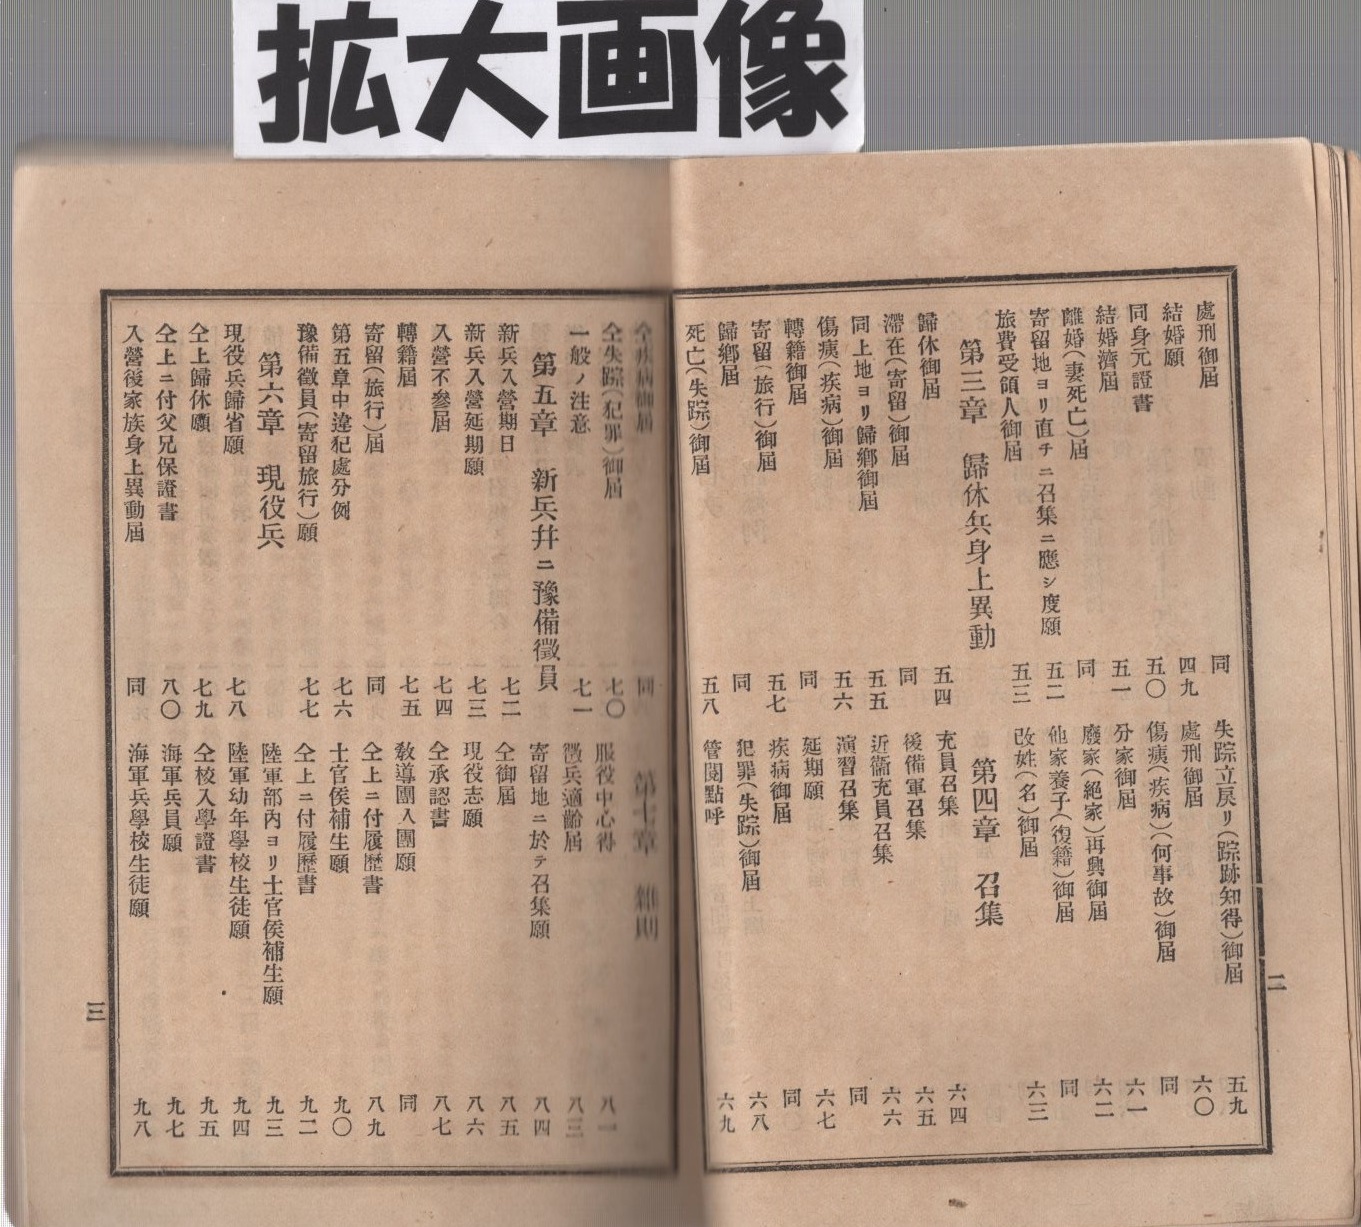 拡大画像
處刑御屆 同
結婚願 四九
同身元證書 五〇
結婚濟屆 五一
離婚(妻死亡)屆 同
寄留地ヨリ直チニ召集ニ應シ度願 五二
旅費受領人御屆 五三
第三章 歸休兵身上異動
歸休御屆 五四
滯在(寄留)御屆 同
同上地ヨリ歸鄕御屆 五五
傷痍(疾病)御屆 五六
轉籍御屆 同
寄留(旅行)御屆 五七
歸鄕屆 同
死亡(失踪)御屆 五八
失踪立戻リ(踪跡知得)御屆 五九
處刑御屆 六〇
傷痍(疾病)(何事故)御屆 同
分家御屆 六一
廢家(絕家)再興御屆 六二
他家養子(復籍)御屆 同
改姓(名)御屆 六三
第四章 召集
充員召集 六四
後備軍召集 六五
近衞充員召集 六六
演習召集 同
延期願 六七
疾病御屆 同
犯罪(失踪)御屆 六八
管閱點呼 六九
二
仝疾病御屆 同
仝失踪(犯罪)御屆 七〇
一般ノ注意 七一
第五章 新兵幷ニ豫備徵員
新兵入營期日 七二
新兵入營延期願 七三
入營不參屆 七四
轉籍屆 七五
寄留(旅行)屆 同
第五章中違犯處分例 七六
豫備徵員(寄留旅行)願 七七
第六章 現役兵
現役兵歸省願 七八
仝上歸休願 七九
仝上ニ付父兄保證書 八〇
入營後家族身上異動屆 同
第七章 雜則
服役中心得 八一
徵兵適齡屆 八三
寄留地ニ於テ召集願 八四
仝御屆 八五
現役志願 八六
仝承認書 八七
敎導團入團願 同
仝上ニ付履歷書 八九
士官候補生願 九〇
仝上ニ付履歷書 九二
陸軍部內ヨリ士官侯補生願 九三
陸軍幼年學校生徒願 九四
仝校入學證書 九五
海軍兵員願 九七
海軍兵學校生徒願 九八
三